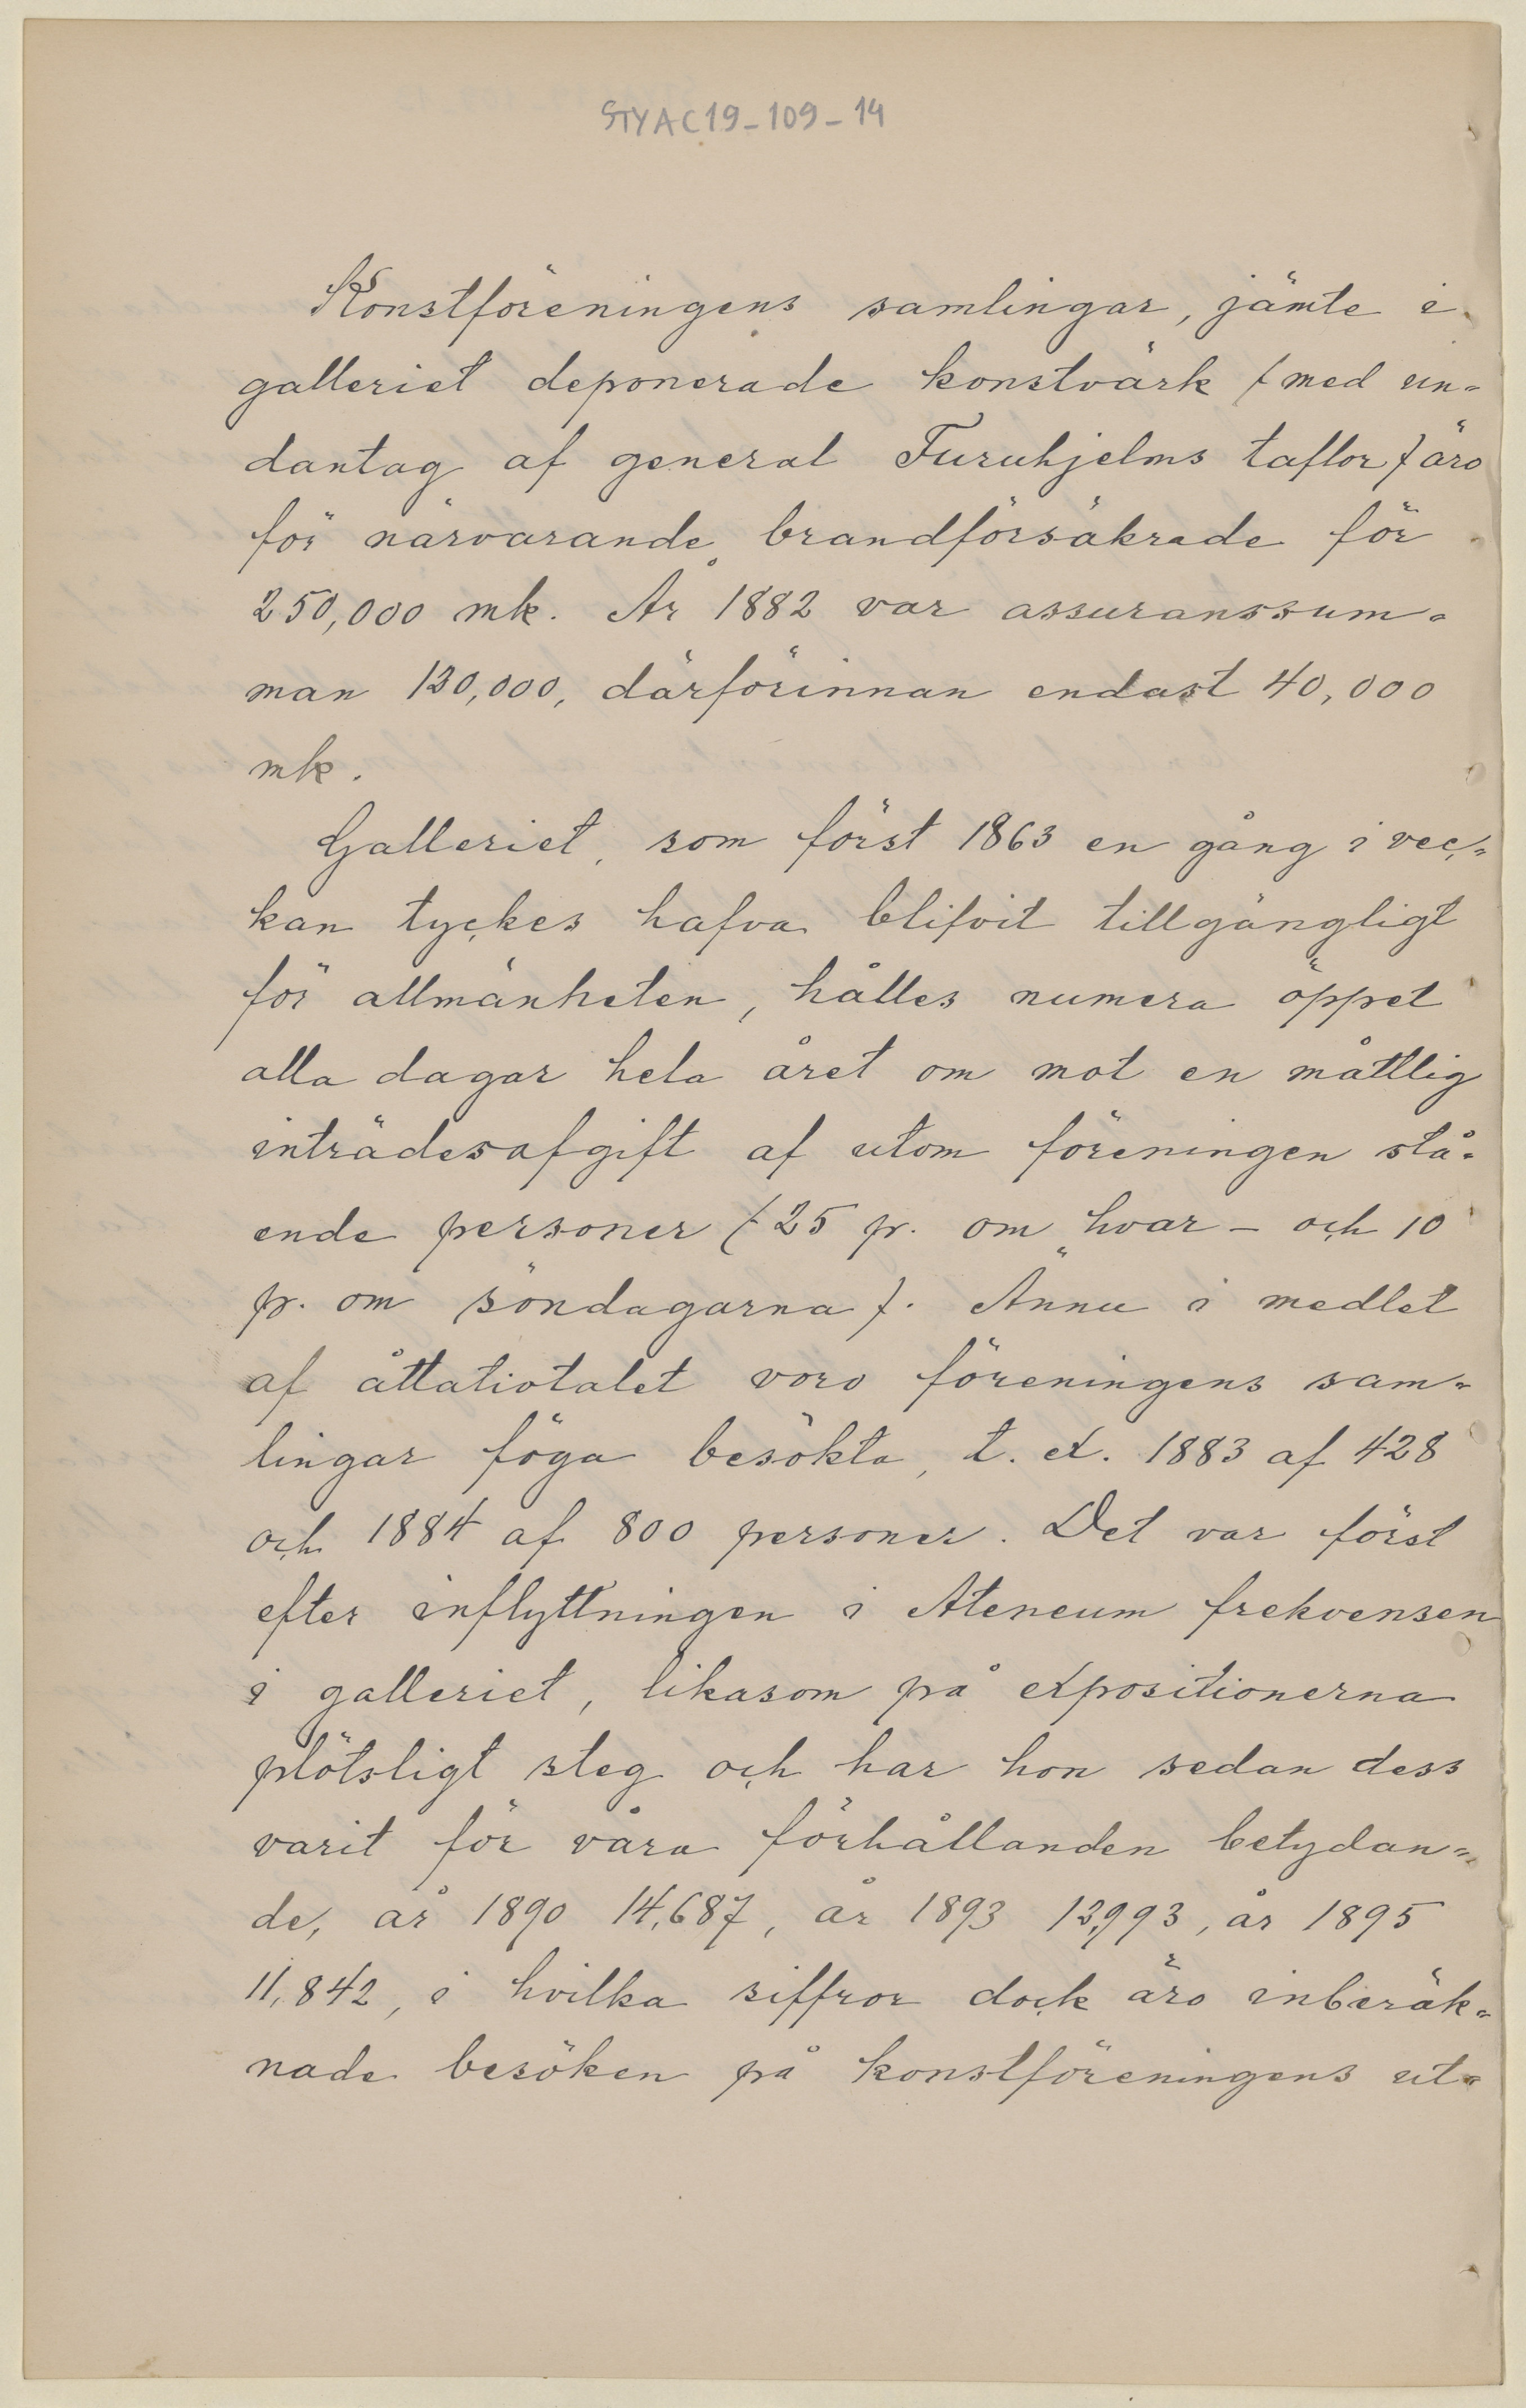 STYAC19-109-14
Konstföreningens samlingar, jämte i
galleriet deponerade konstvärk (med un-
dantag af general Furuhjelms taflor) äro
för närvarande brandförsäkrade för
250,000 mk. År 1882 var assuranssum-
man 130,000, därförinnan endast 40,000
mk.
Galleriet, som först 1863 en gång i vec-
kan tyckes hafva blifvit tillgängligt
för allmänheten, hålles numera öppet
alla dagar hela året om mot en måttlig
inträdesafgift af utom föreningen stå-
ende personer (25 p. om hvar- och 10
p. om söndagarna). Ännu i medlet
af åttatiotalet voro föreningens sam-
lingar föga besökta, t. ex. 1883 af 428
och 1884 af 800 personer. Det var först
efter inflyttningen i Ateneum frekvensen
i galleriet, likasom på expositionerna
plötsligt steg och har hon sedan dess
varit för våra förhållanden betydan-
de, år 1890 14,687, år 1893 13,993, år 1895
11,842, i hvilka siffror dock äro inberäk-
nade besöken på konstföreningens ut-